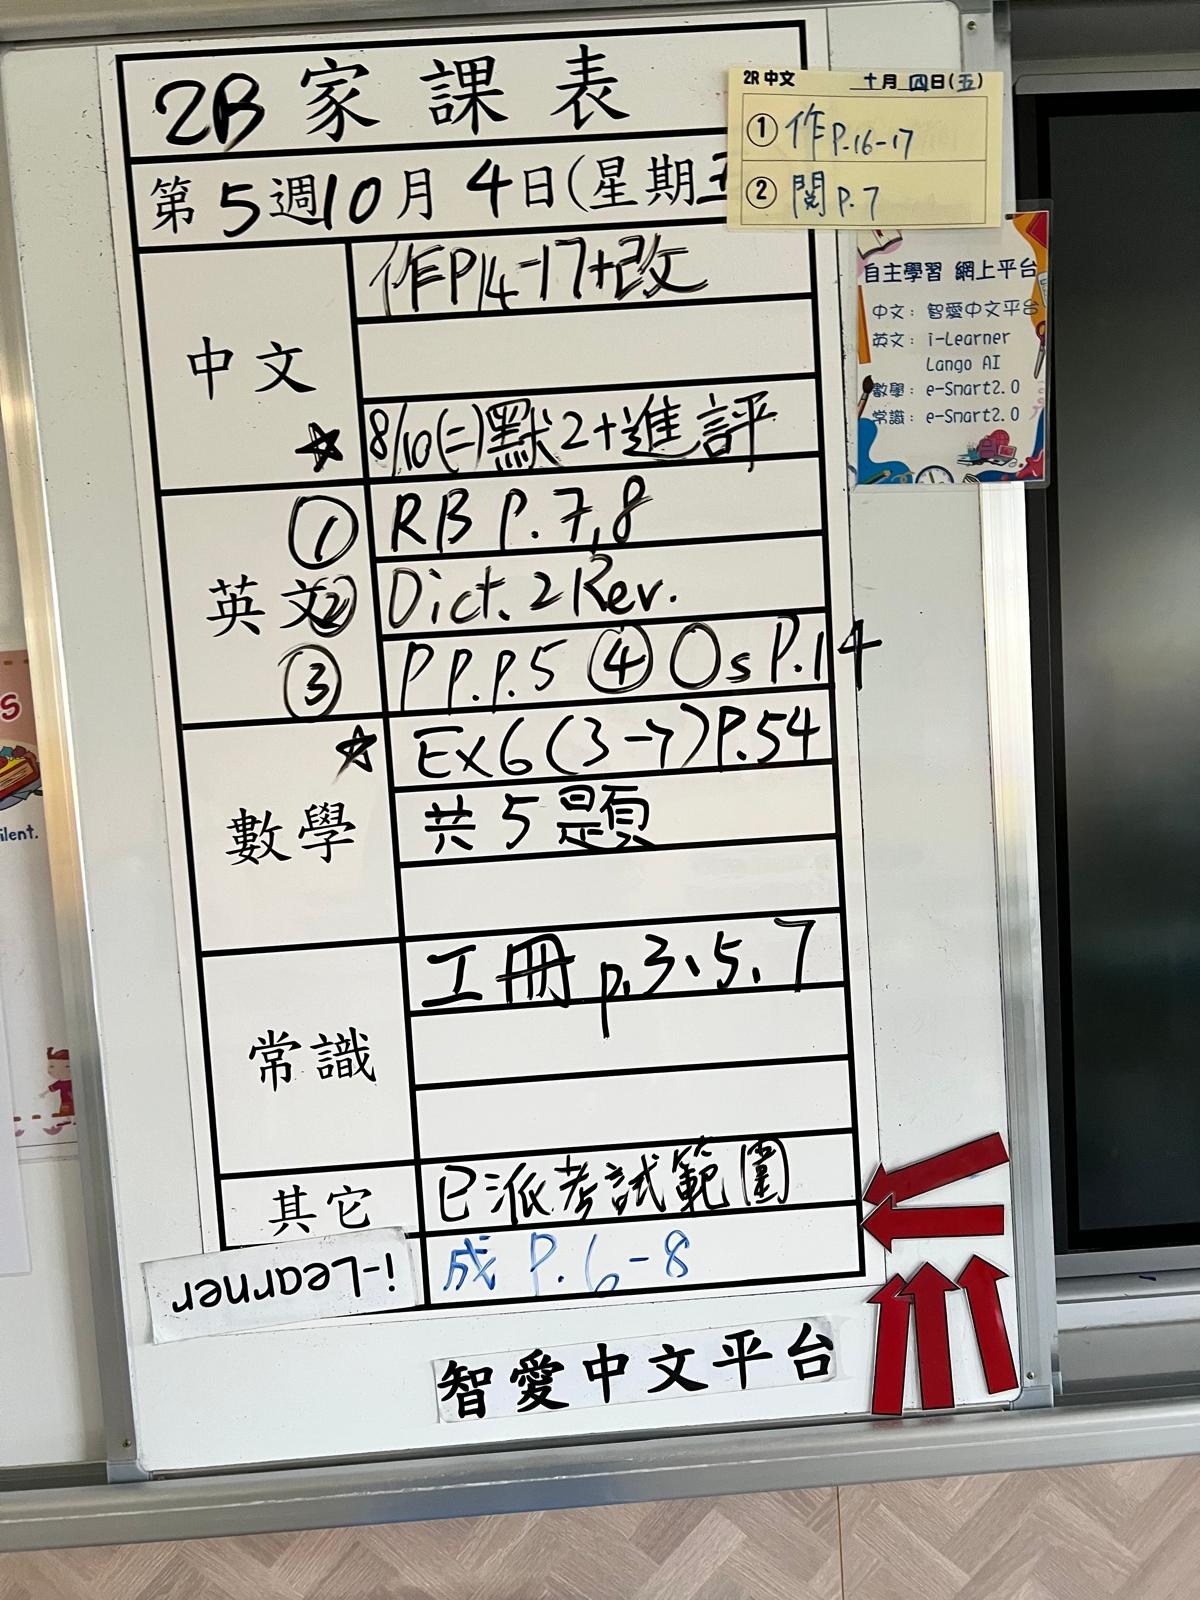 2B 家課表
第5週10月4日(星期五
2R 中文 十月四日(五)
① 作P.16-17
② 閱P.7
自主學習 網上平台
中文: 智愛中文平台
英文: i-Learner
Lango AI
數學: e-Smart2.0
常識: e-Smart2.0
中文
作P14-17+改
★ 8/10(二)默2+進評
英文
① RB P.7,8
② Dict. 2 Rev.
③ PP.P.5 ④ Os P.14
數學
☆ Ex6(3→7)P.54
共5題
常識
工冊 p.3、5、7
其它
已派考試範圍
成 P.6-8
i-Learner
智愛中文平台
s
ilent.